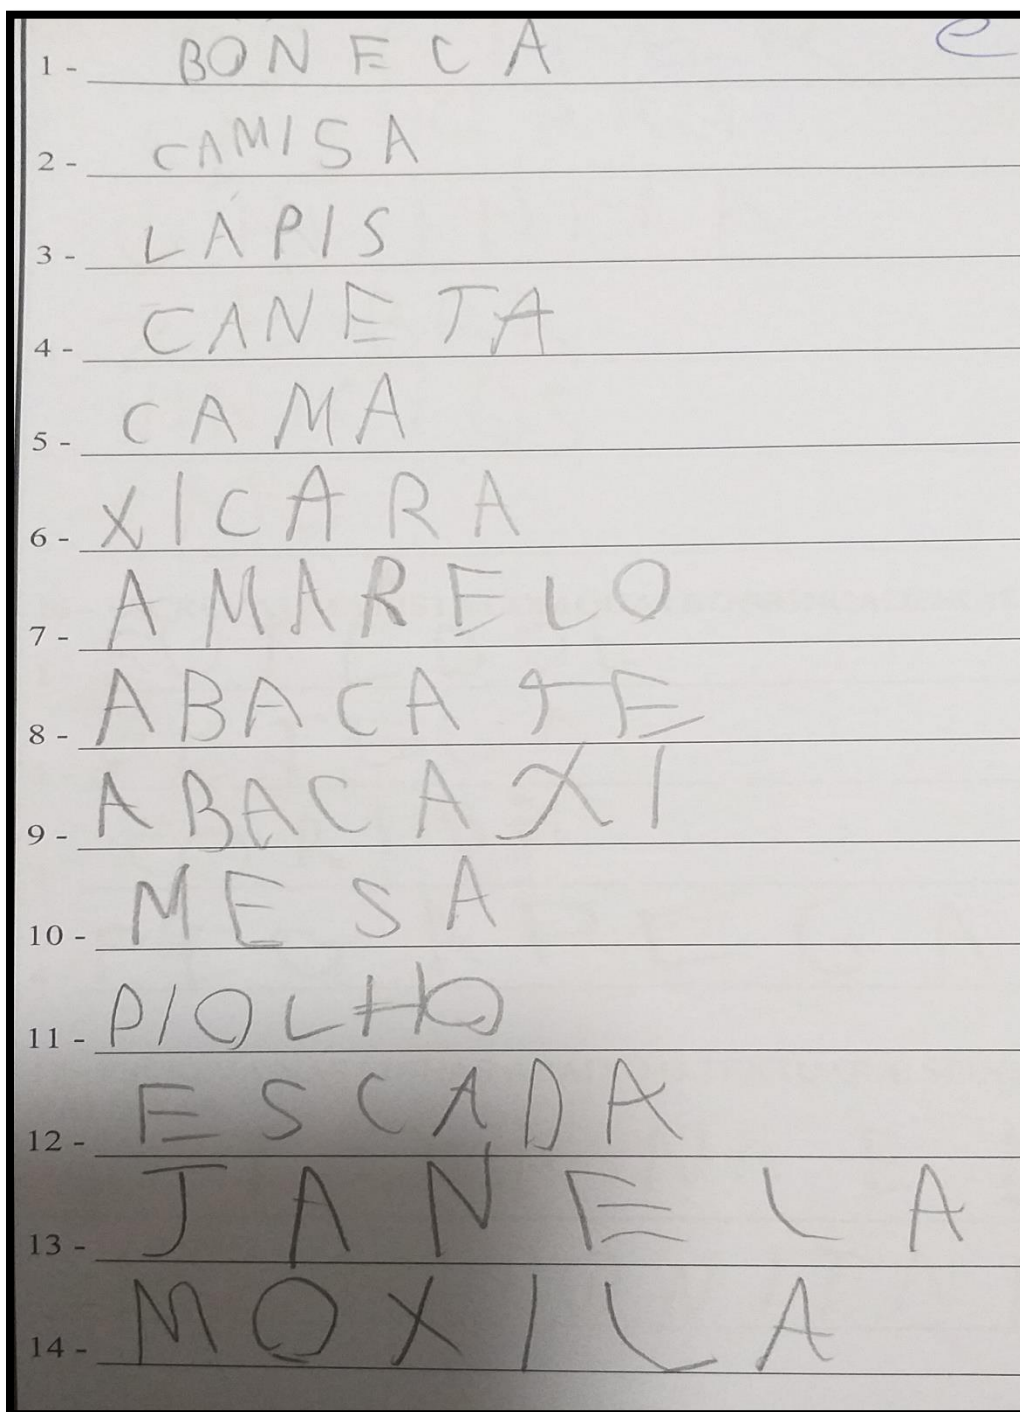 1 - BONECA e
2 - CAMISA
3 - LÁPIS
4 - CANETA
5 - CAMA
6 - XICARA
7 - AMARELO
8 - ABACATE
9 - ABACAXI
10 - MESA
11 - PIOLHO
12 - ESCADA
13 - JANELA
14 - MOXILA